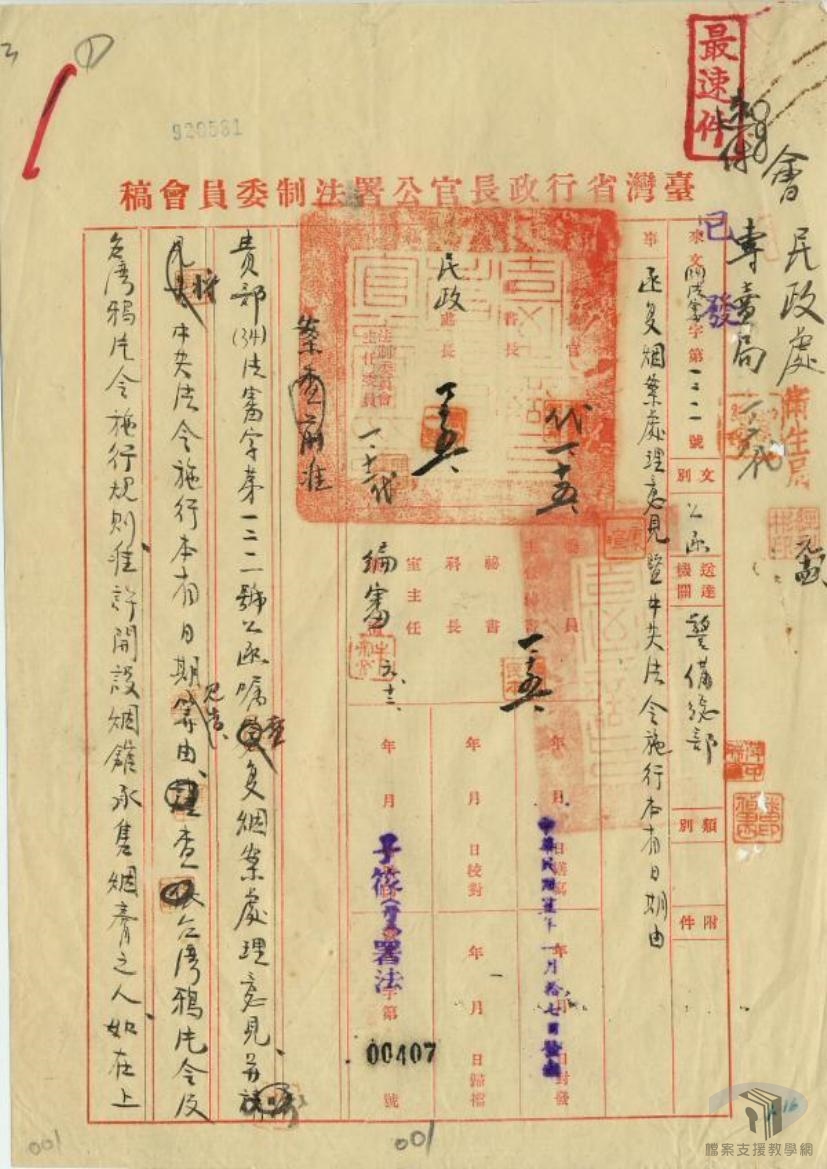 最速件
920581
會 民政處
專賣局
衛生局
臺灣省行政長官公署法制委員會稿
已發
來文 法審字第一二二號
文別 公函
送達機關 警備總部
類別
附件
事由 函复烟案處理意見暨中央法令施行本省日期由
民政處長
法制委員會主任委員
秘書
科長
室主任
編審
年 月 日繕寫
年 月 日校對
年 月 日封發
年 月 日歸檔
中華民國 年一月拾七日發出
子篠 署法
字第 00407 號
案查前准
貴部(34)法審字第一二二號公函囑查复烟案處理意見、并將
中央法令施行本省日期見告、查台湾鴉片令及
台湾鴉片令施行規則准許開設烟館承售烟膏之人、如在上
001
001
檔案支援教學網